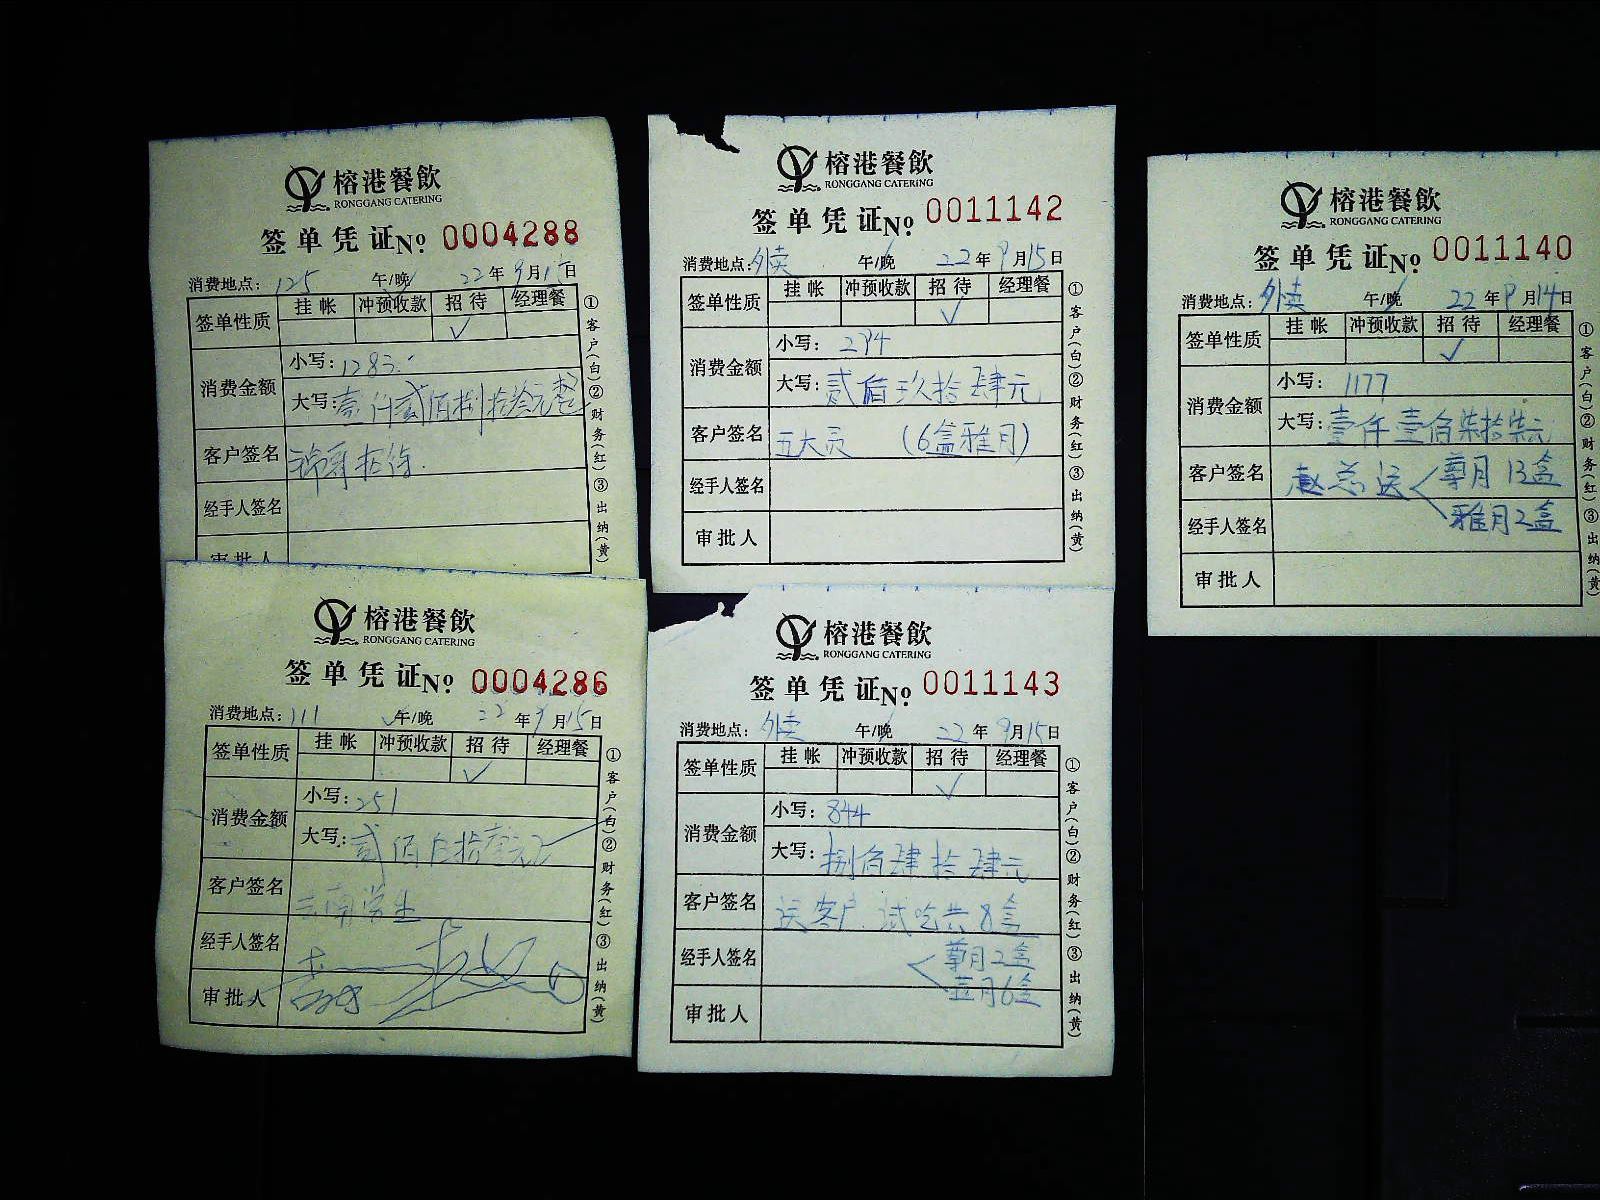 榕港餐飲
RONGGANG CATERING
签单凭证 No. 0004288
消费地点: 125 午/晚 22年9月15日
签单性质 挂帐 冲预收款 招待 经理餐
✓
消费金额 小写: 1283.
大写: 壹仟贰佰捌拾叁元整
客户签名
经手人签名
审批人
①客户(白)②财务(红)③出纳(黄)
榕港餐飲
RONGGANG CATERING
签单凭证 No. 0004286
消费地点: 111 午/晚 22年9月15日
签单性质 挂帐 冲预收款 招待 经理餐
✓
消费金额 小写: 251
大写: 贰佰
客户签名 云南学生
经手人签名
审批人
①客户(白)②财务(红)③出纳(黄)
榕港餐飲
RONGGANG CATERING
签单凭证 No. 0011142
消费地点: 外卖 午/晚 22年9月15日
签单性质 挂帐 冲预收款 招待 经理餐
✓
消费金额 小写: 294
大写: 贰佰玖拾肆元
客户签名 五大员 (6盒雅月)
经手人签名
审批人
①客户(白)②财务(红)③出纳(黄)
榕港餐飲
RONGGANG CATERING
签单凭证 No. 0011143
消费地点: 外卖 午/晚 22年9月15日
签单性质 挂帐 冲预收款 招待 经理餐
✓
消费金额 小写: 844
大写: 捌佰肆拾肆元
客户签名 送客户.试吃共8盒
经手人签名 尊月2盒
月6盒
审批人
①客户(白)②财务(红)③出纳(黄)
榕港餐飲
RONGGANG CATERING
签单凭证 No. 0011140
消费地点: 外卖 午/晚 22年9月14日
签单性质 挂帐 冲预收款 招待 经理餐
✓
消费金额 小写: 1177
大写: 壹仟壹佰柒拾柒元
客户签名 赵总送 尊月13盒
经手人签名 雅月2盒
审批人
①客户(白)②财务(红)③出纳(黄)